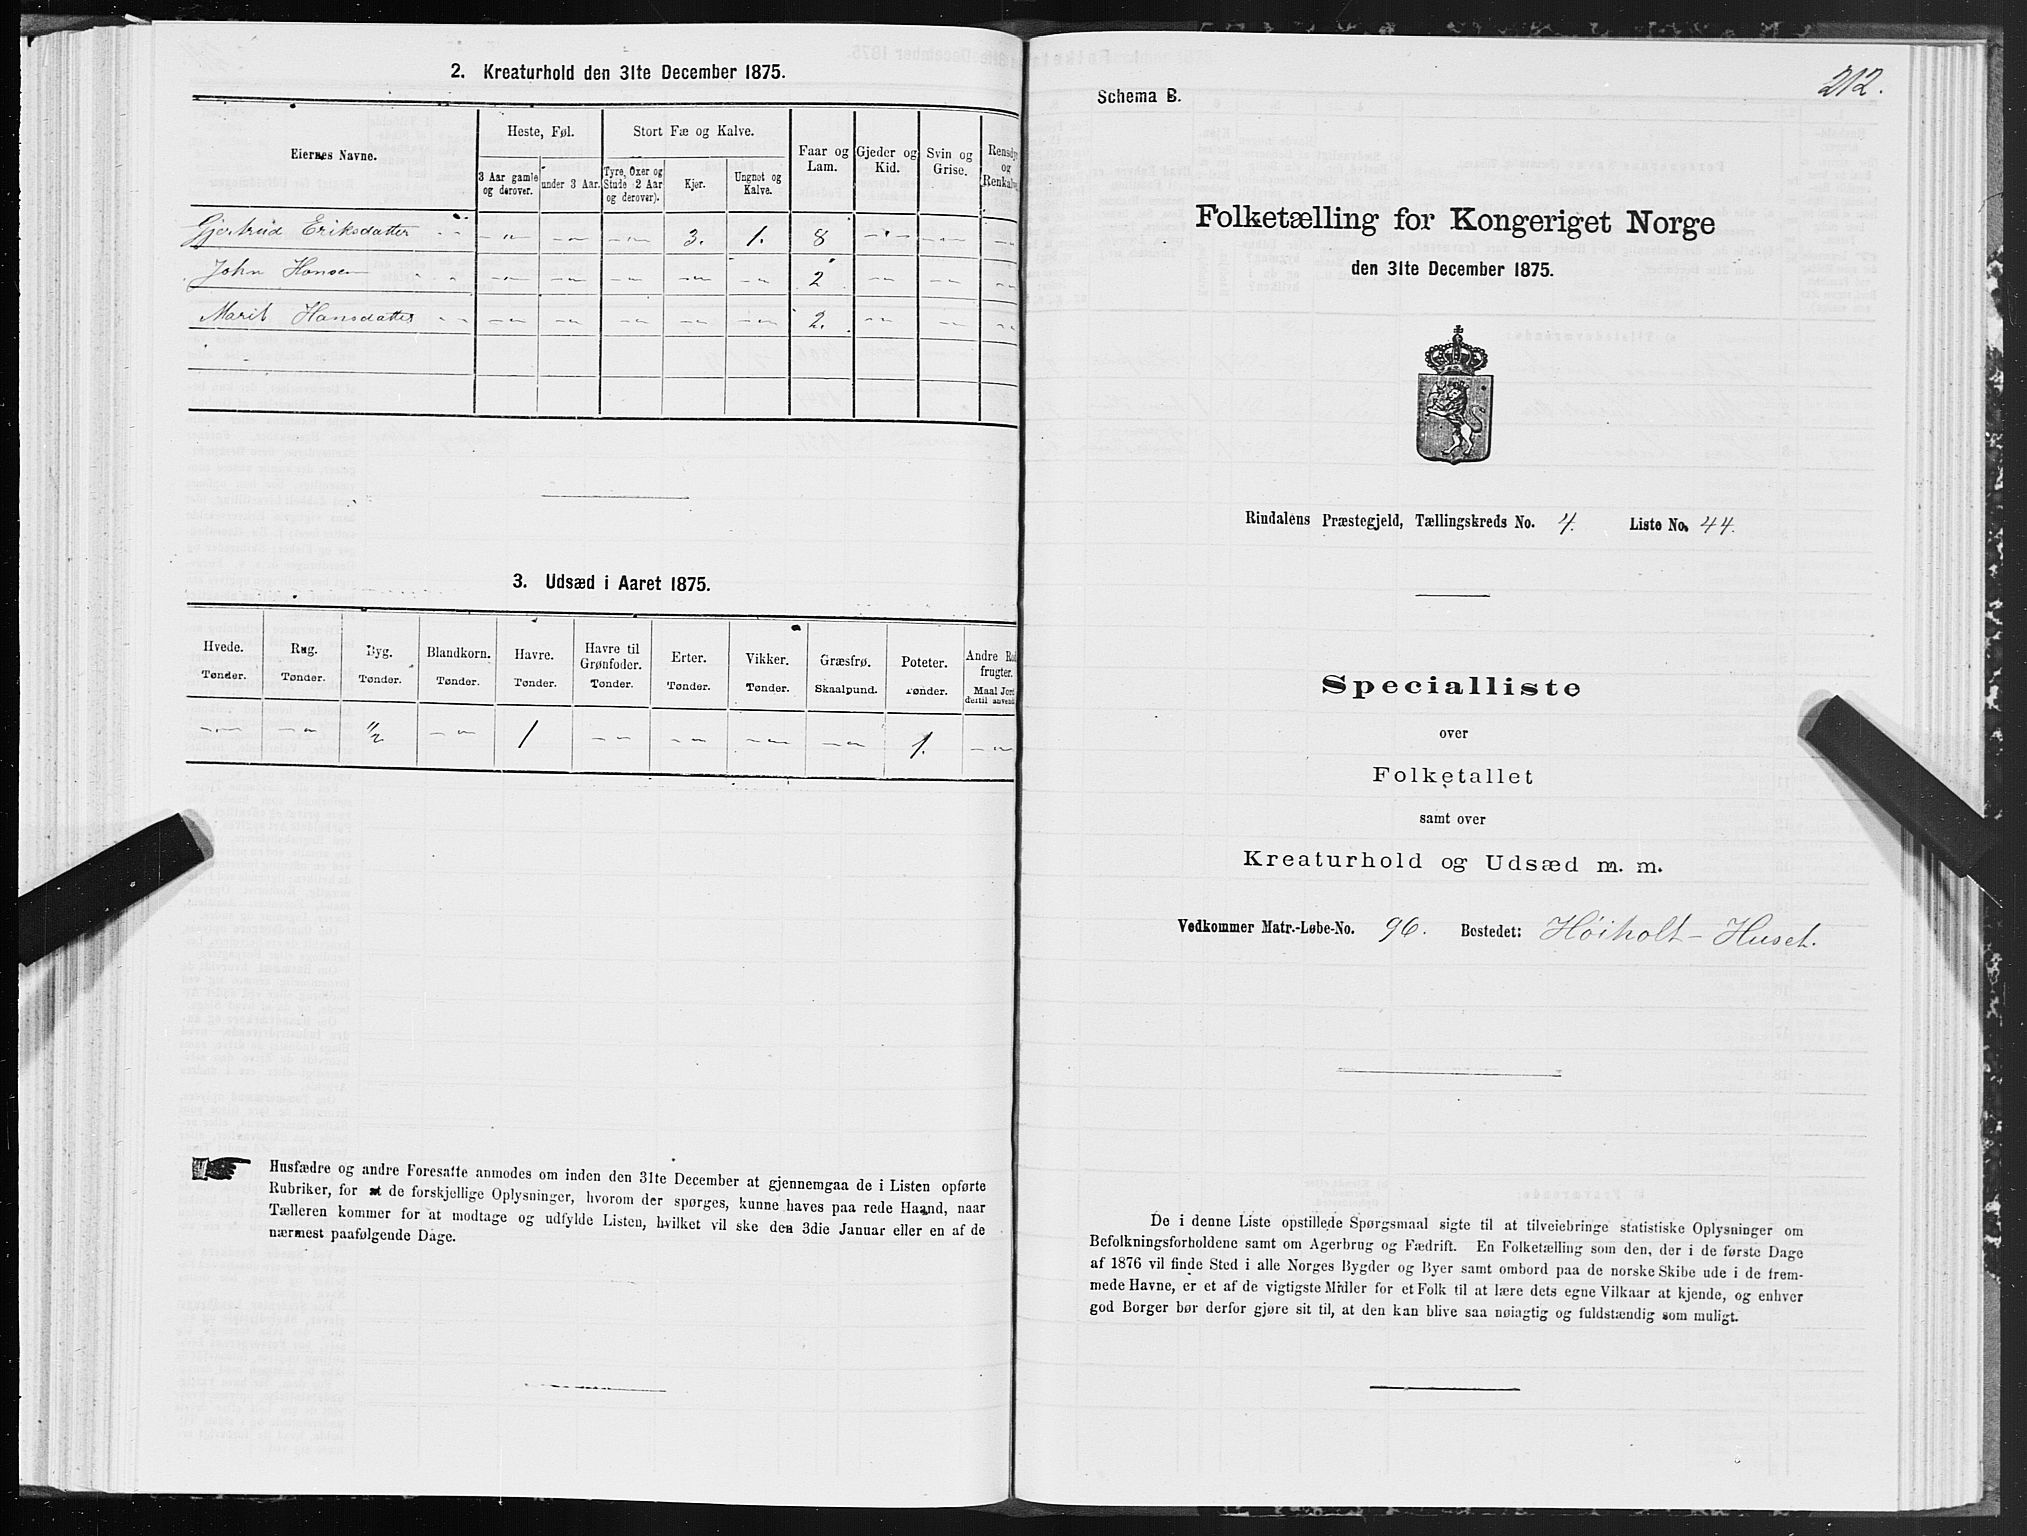 2. Kreaturhold den 31te December 1875.
Eiernes Navne.
Heste, Føl.
Stort Fæ og Kalve.
Faar og Lam.
Gjeder og Kid.
Svin og Grise.
Rensdyr og Renkalve
3 Aar gamle og derover.
under 3 Aar.
Tyre, Oxer og Stude (2 Aar og derover).
Kjør.
Ungnøt og Kalve.
Gjertrud Eriksdatter - - - „ - - „ - - „ - 3. 1. 8 - „ - - „ - - „
John Hansen - - - „ - - „ - - „ - - „ - - „ 2 - „ - - „ - - „
Marit Hansdatter - - - „ - - „ - - „ - - „ - - „ 2. - „ - - „ - - „
3. Udsæd i Aaret 1875.
Hvede. Tønder.
Rug. Tønder.
Byg. Tønder.
Blandkorn. Tønder.
Havre. Tønder.
Havre til Grønfoder. Tønder.
Erter. Tønder.
Vikker. Tønder.
Græsfrø. Skaalpund.
Poteter. Tønder.
Andre Rod frugter. Maal Jord dertil anvendt
- „ - - „ 1/2 - „ 1 - „ - „ - „ - „ 1. - „
Husfædre og andre Foresatte anmodes om inden den 31te December at gjennemgaa de i Listen opførte
Rubriker, for at de forskjellige Oplysninger, hvorom der spørges, kunne haves paa rede Haand, naar
Tælleren kommer for at modtage og udfylde Listen, hvilket vil ske den 3die Januar eller en af de
nærmest paafølgende Dage.
212.
Schema B.
Folketælling for Kongeriget Norge
den 31te December 1875.
Rindalens Præstegjeld, Tællingskreds No. 4. Liste No. 44.
Specialliste
over
Folketallet
samt over
Kreaturhold og Udsæd m. m.
Vedkommer Matr.-Løbe-No. 96. Bostedet: Høiholt-Huset.
De i denne Liste opstillede Spørgsmaal sigte til at tilveiebringe statistiske Oplysninger om
Befolkningsforholdene samt om Agerbrug og Fædrift. En Folketælling som den, der i de første Dage
af 1876 vil finde Sted i alle Norges Bygder og Byer samt ombord paa de norske Skibe ude i de frem-
mede Havne, er et af de vigtigste Midler for et Folk til at lære dets egne Vilkaar at kjende, og enhver
god Borger bør derfor gjøre sit til, at den kan blive saa nøiagtig og fuldstændig som muligt.